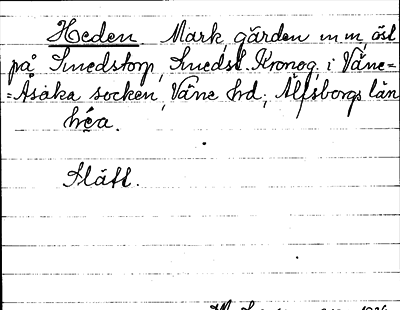 Heden. Mark, gärden m m, öst
på Smedstorp, Smedst. Kronog. i Väne-
=Åsaka socken, Väne hd, Älfsborgs län
héa.
Slätt.